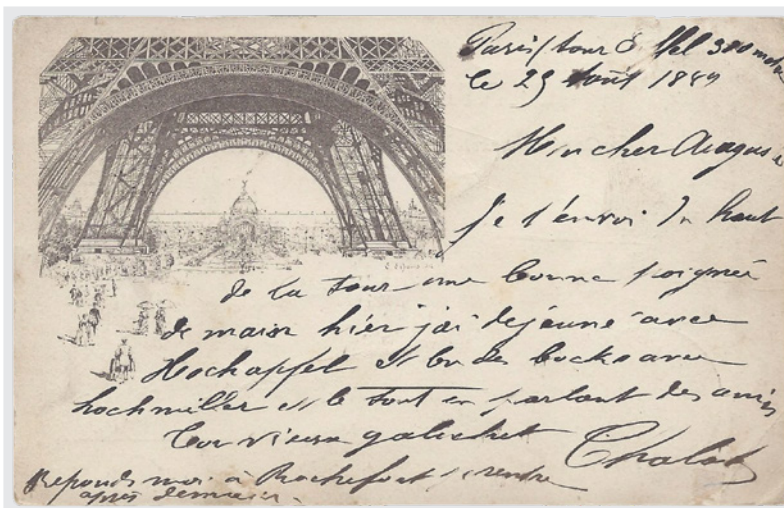 Paris / tour Eiffel 300 metres
le 23 Août 1889
Mon cher August
Je t'envoi du haut
de la tour une bonne poignée
de main hier j'ai dejeuné avec
Hochapfel et bu des bocks avec
hochmiller et le tout en parlant des amis
Ton vieux
Chalot
Reponds moi à Rochefort je rentre
après demain.